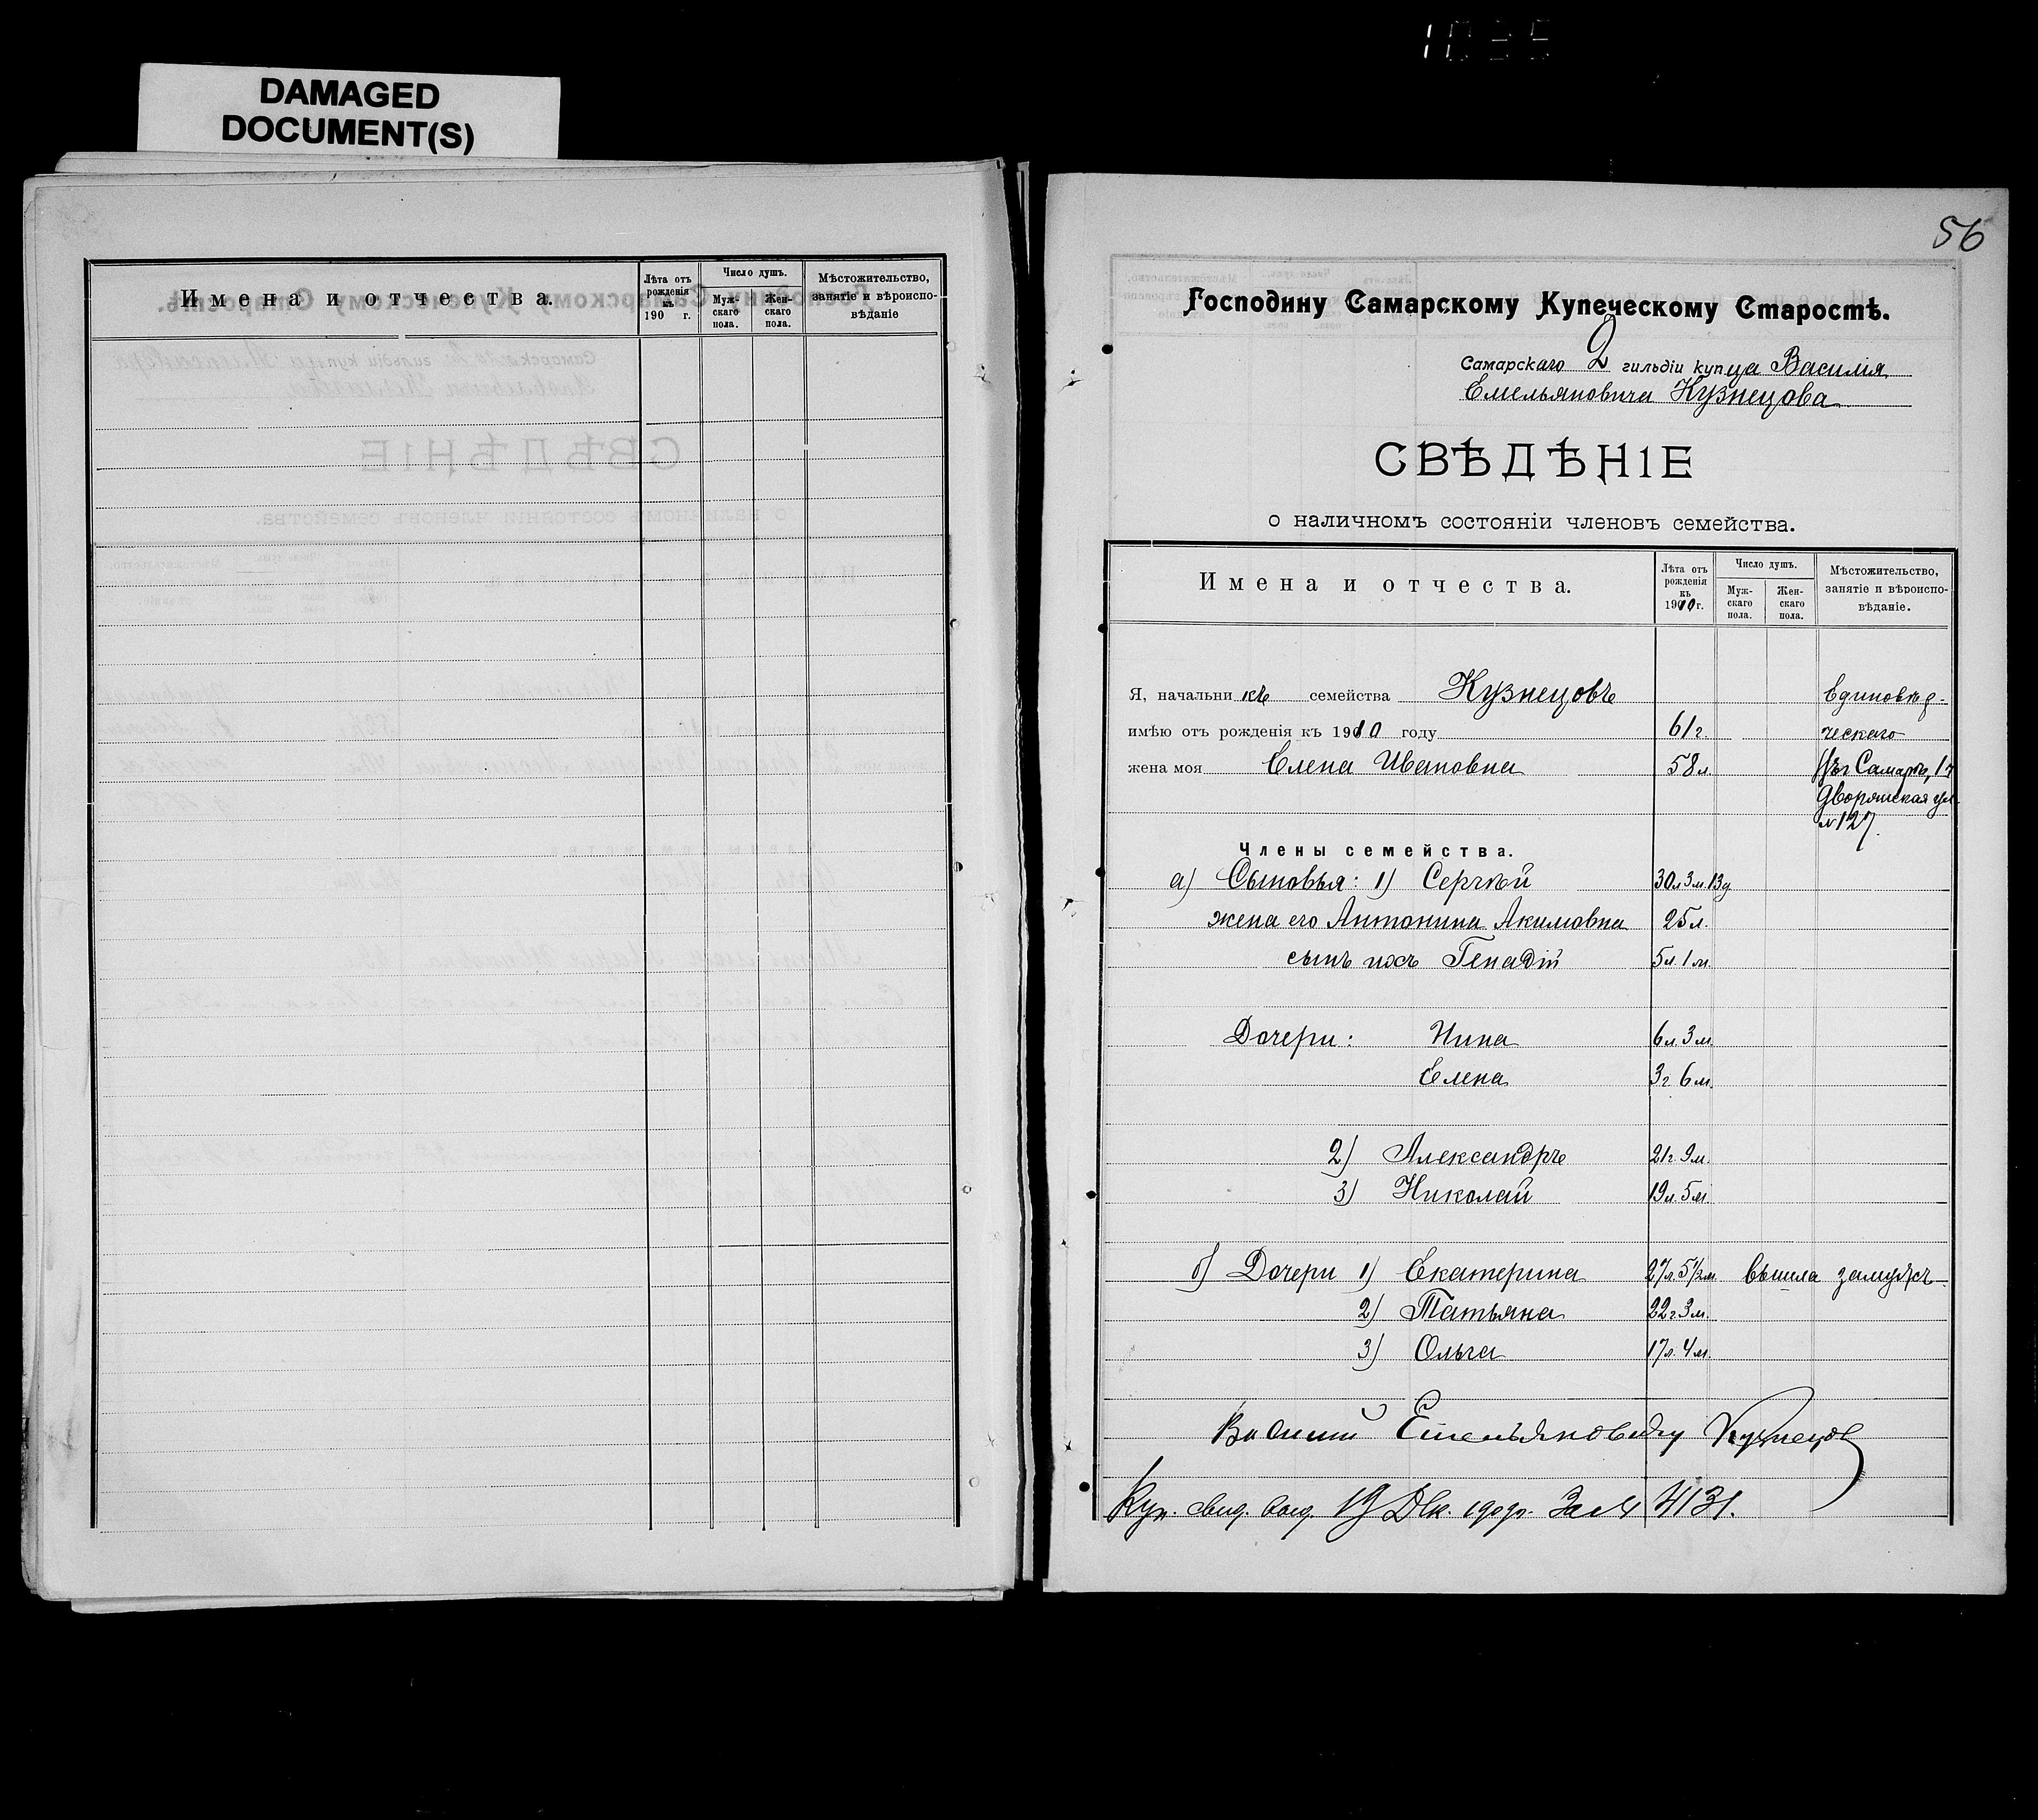 1035
DAMAGED
DOCUMENT(S)
Имена и отчества.
Лѣта отъ рожденія къ 190 г.
Число душъ.
Муж-скаго пола.
Жен-скаго пола.
Мѣстожительство, занятіе и вѣроиспо-вѣданіе
56
Господину Самарскому Купеческому Старостѣ.
Самарскаго 2 гильдіи купца Василія
Емельяновича Кузнецова
СВѢДѢНІЕ
о наличномъ состояніи членовъ семейства.
Имена и отчества.
Лѣта отъ рожденія къ 1910 г.
Число душъ.
Муж-скаго пола.
Жен-скаго пола.
Мѣстожительство, занятіе и вѣроиспо-вѣданіе.
Я, начальникъ семейства Кузнецовъ
имѣю отъ рожденія къ 1910 году 61 г. ческаго
жена моя Елена Ивановна 58 л. Самарѣ, 
Дворянская ул.
№ 127.
Члены семейства.
а) Сыновья: 1) Сергѣй 30 л. 3 м. 13 д
жена его Антонина Акимовна 25 л.
сынъ ихъ Генадій 5 л. 1 м.
Дочери: Нина 6 л. 3 м.
Елена 3 г 6 м.
2) Александръ 21 г 9 м.
3) Николай 19 л. 5 м.
б) Дочери 1) Екатерина 27 л. 5 1/2 м. вышла замужъ
2) Татьяна 22 г 3 м.
3) Ольга 17 л. 4 м.
Василий Емельяновичъ Кузнецов
Куп. свид. выд. 19 Дек. 1909 г. За № 4131.